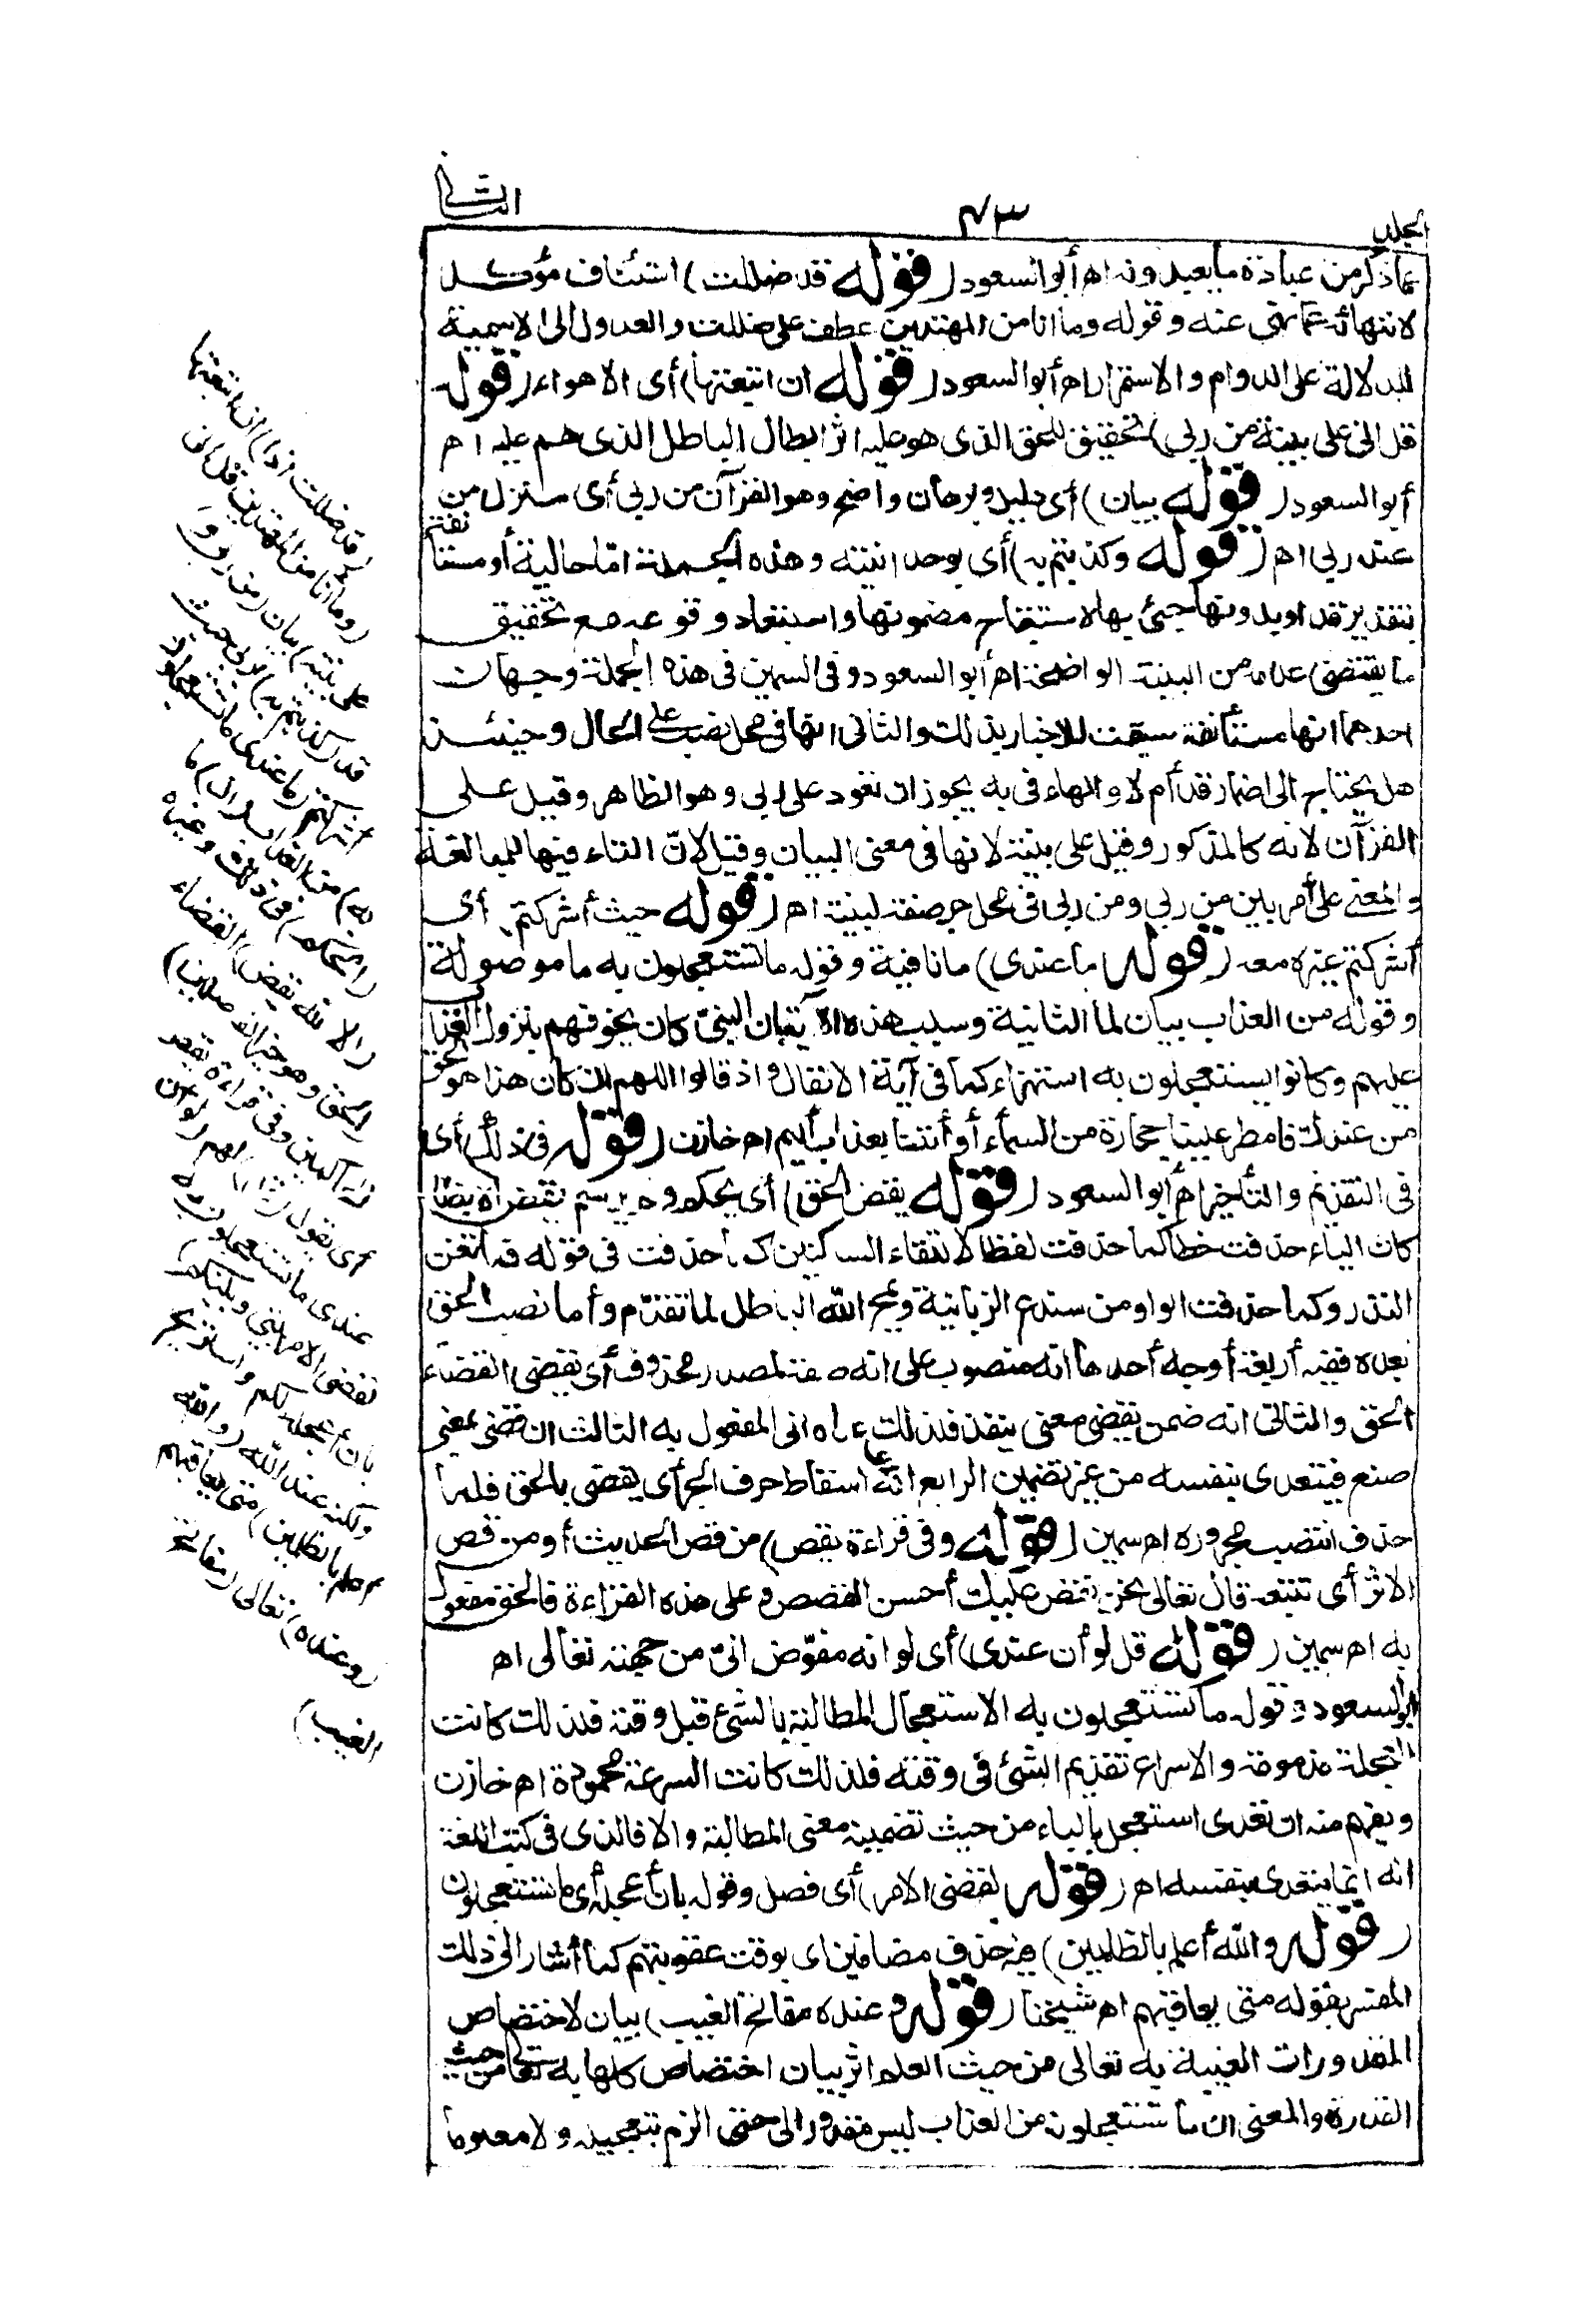 الجلد
٤٣
الثاني
عما ذكر من عبادة ما يعبدونه اه أبو السعود (قوله قد ضللت) استئناف مؤكد
لانتهائه عما نهى عنه وقوله وما أنا من المهتدين عطف على ضللت والعدول الى الاسمية
للدلالة على الدوام والاستمرار اه أبو السعود (قوله ان اتبعتها) أى الاهواء (قوله
قل انى على بينة من ربي) تحقيق للحق الذى هو عليه اثر ابطال الباطل الذى هم عليه اه
أبو السعود (قوله بيان) أى دليل وبرهان واضح وهو القرآن من ربى أى منزل من
عند ربى اه (قوله وكذبتم به) أى بوحدانيته وهذه الجملة اما حالية أو مستأنفة
بتقدير قد أو بدونها جيئ بها لاستقباح مضمونها واستبعاد وقوعه مع تحقيق
ما يقتضى عدمه من البينة الواضحة اه أبو السعود وفى السمين فى هذه الجملة وجهان
احدهما انها مستأنفة سيقت للاخبار بذلك والثانى انها فى محل نصب على الحال وحينئذ
هل يحتاج الى اضمار قد أم لا والهاء فى به يجوز ان تعود على ربى وهو الظاهر وقيل على
القرآن لانه كالمذكور وقيل على بينة لانها فى معنى البيان وقيل لانّ التاء فيها للمبالغة
والمعنى على أمر بين من ربي ومن ربى فى محل جر صفة لبينة اه (قوله حيث أشركتم) أى
أشركتم غيره معه (قوله ما عندى) ما نافية وقوله ما تستعجلون به ما موصولة
وقوله من العذاب بيان لما الثانية وسبب هذه الآية أن النبىّ كان يخوفهم بنزول العذاب
عليهم وكانوا يستعجلون به استهزاء كما فى آية الانفال واذ قالوا اللهم ان كان هذا هو الحق
من عندك فامطر علينا حجارة من السماء أو أئتنا بعذاب أليم اه خازن (قوله فى ذلك) أى
فى التقديم والتأخير اه أبو السعود (قوله يقض الحق) أى يحكم ولم يرسم بقض الا بضاد
كان الياء حذفت خطا كما حذفت لفظا لالتقاء الساكنين كما حذفت فى قوله فما تغن
النذر وكما حذفت الواو من سندع الزبانية ويمح الله الباطل لما تقدّم وأما نصب الحق
بعده ففيه أربعة أوجه أحدها انه منصوب على انه صفة لمصدر محذوف أى يقضى القضاء
الحق والثانى انه ضمن يقضى معنى ينفذ فلذلك عداه الى المفعول به الثالث ان قضى بمعنى
صنع فيتعدى بنفسه من غير تضمين الرابع انه على اسقاط حرف الجر أى يقضى بالحق فلما
حذف انتصب مجروره اه سمين (قوله وفى قراءة يقص) من قص الحديث أو من قص
الاثر أى تتبعه قال تعالى نحن نقص عليك أحسن القصص وعلى هذه القراءة فالحق مفعول
به اه سمين (قوله قل لو أن عندى) أى لو انه مفوّض الىّ من جهته تعالى اه
أبو السعود وقوله ما تستعجلون به الاستعجال المطالبة بالشئ قبل وقته فلذلك كانت
العجلة مذمومة والاسراع تقديم الشئ فى وقته فلذلك كانت السرعة محمودة اه خازن
ويفهم منه ان تعدى استعجل بالباء من حيث تضمينه معنى المطالبة والا فالذى فى كتب اللغة
انه انما يتعدى بنفسه اه (قوله لقضى الامر) أى فصل وقوله بان أعجله أى ما تستعجلون
(قوله والله أعلم بالظالمين) فيه حذف مضافين اى بوقت عقوبتهم كما أشار الى ذلك
المفسر بقوله متى يعاقبهم اه شيخنا (قوله وعنده مفاتح الغيب) بيان لاختصاص
المقدورات الغيبية به تعالى من حيث العلم اثر بيان اختصاص كلها به تعالى من حيث
القدرة والمعنى ان ما تستعجلونه من العذاب ليس مقدورا لى حتى الزم بتعجيله ولا معلوما
(قد ضللت اذا) ان اتبعتها
(وما أنا من المهتدين قل انى
على بينة) بيان (من ربى و)
قد (كذبتم به) بربى حيث
أشركتم (ما عندى ما تستعجلون
به) من العذاب (ان) ما
(الحكم) فى ذلك وغيره
(الا لله يقض) القضاء
(الحق وهو خير الفاصلين)
الحاكمين وفى قراءة يقص
أى يقول (قل) لهم (لو أن
عندى ما تستعجلون به
لقضى الامر بينى وبينكم)
بان أعجله لكم واستريح
ولكنه عند الله (والله
أعلم بالظلمين) متى يعاقبهم
(وعنده) تعالى (مفاتح
الغيب)